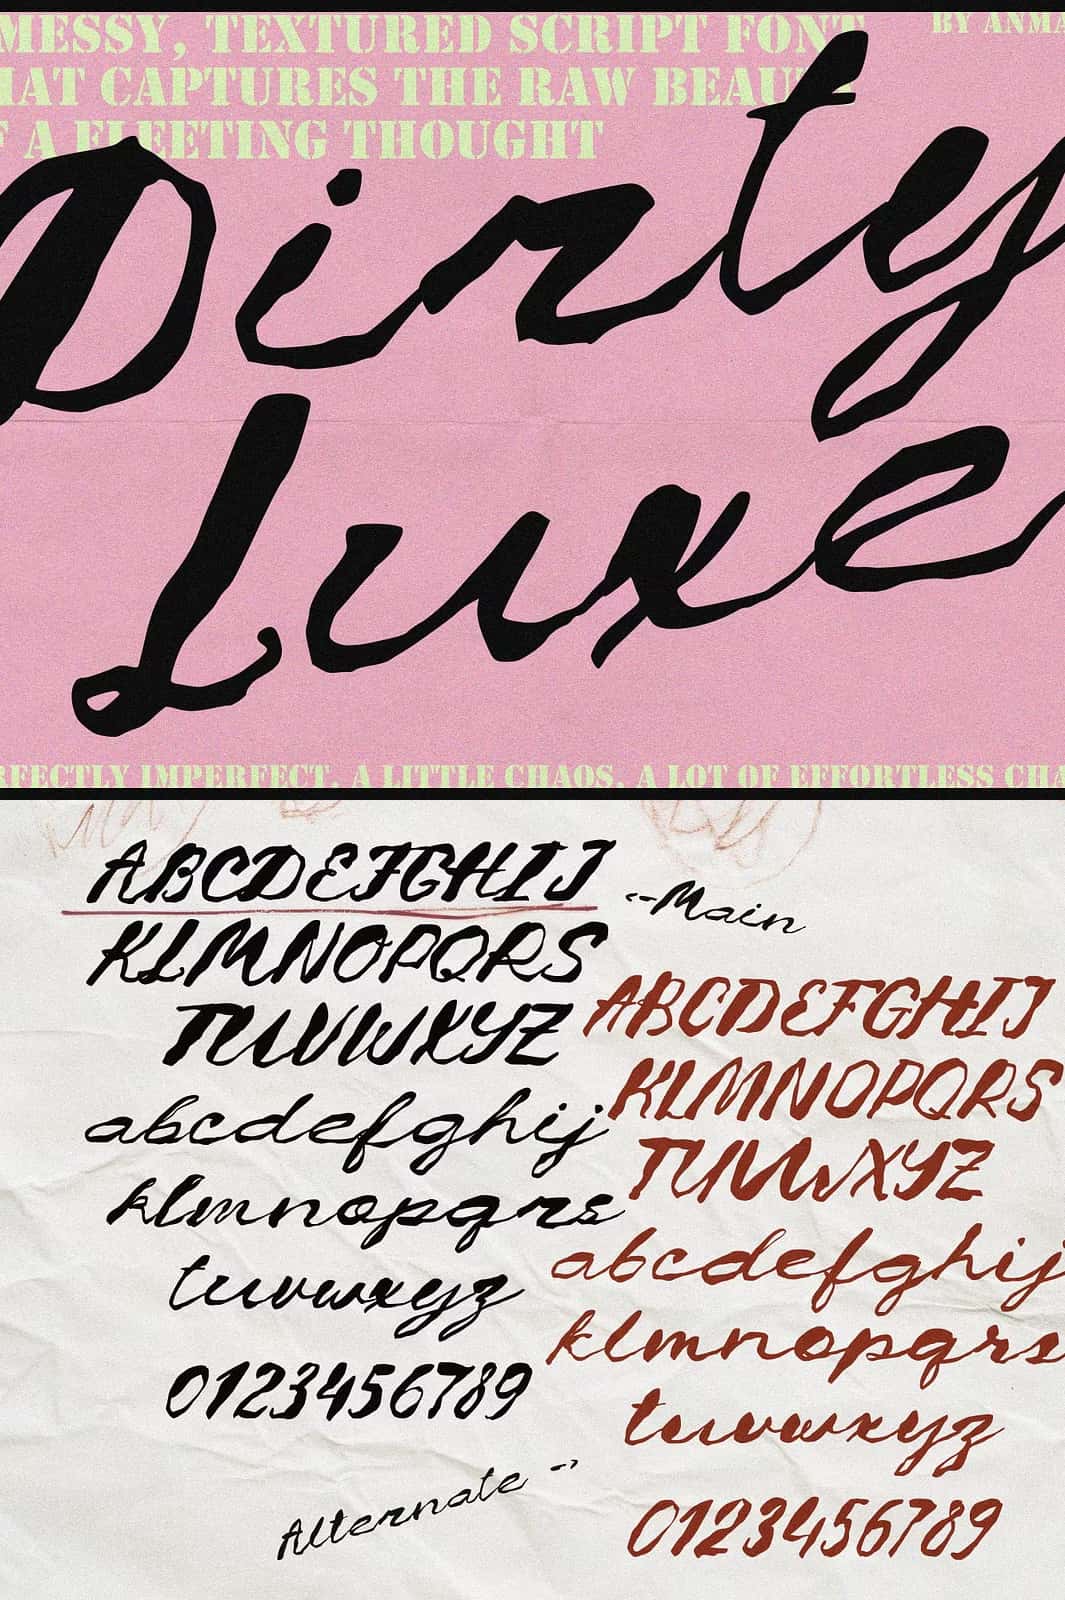 MESSY, TEXTURED SCRIPT FONT
HAT CAPTURES THE RAW BEAU
F A FLEETING THOUGHT
BY ANMA
Dirty
Luxe
RFECTLY IMPERFECT. A LITTLE CHAOS. A LOT OF EFFORTLESS CHA
ABCDEFGHIJ
KLMNOPQRS
TUVWXYZ
abcdefghij
klmnopqrs
tuvwxyz
0123456789
Main
ABCDEFGHIJ
KLMNOPQRS
TUVWXYZ
abcdefghij
klmnopqrs
tuvwxyz
0123456789
Alternate